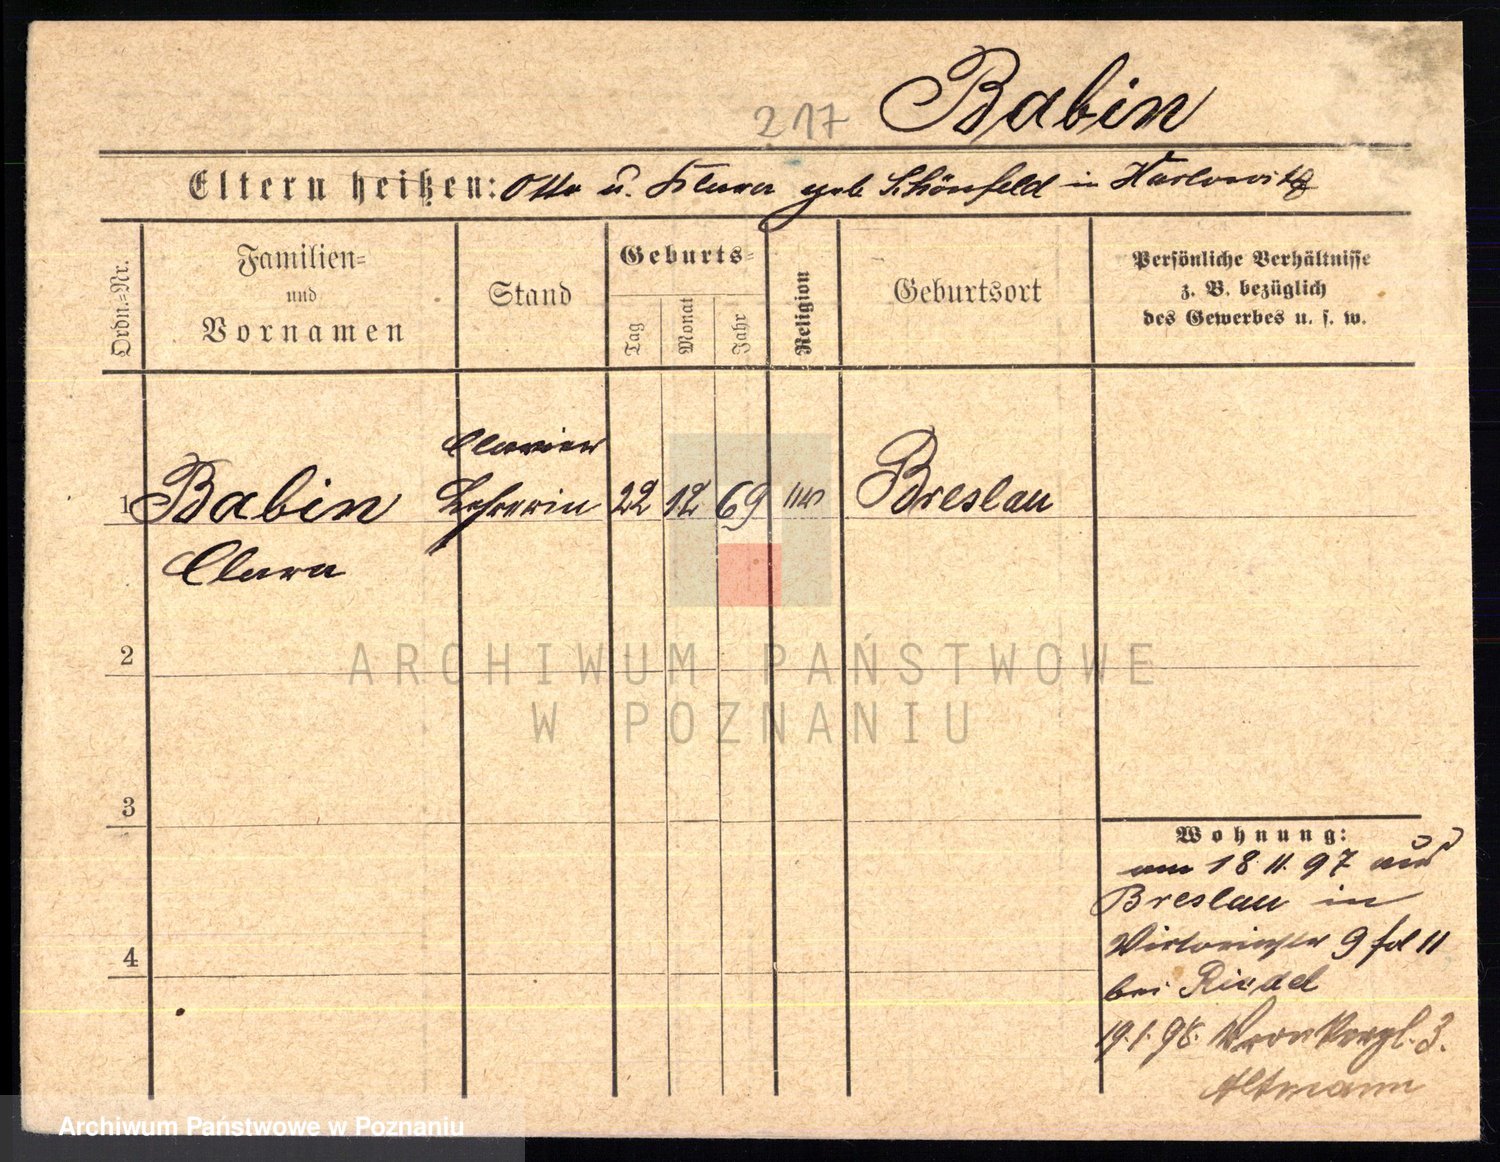 217 Babin
Eltern heißen: Otto u. Klara geb Schönfeld in Karlowitz
Ordn.=Nr.
Familien=
und
Vornamen
Stand
Geburts=
Tag
Monat
Jahr
Religion
Geburtsort
Persönliche Verhältnisse
z. B. bezüglich
des Gewerbes u. s. w.
Clavier
1 Babin Lehrerin 22 12 69 Breslau
Clara
2
3
4
Wohnung:
am 18.11.97 aus
Breslau in
Victoriastr 9
bei Riedel
19.1.98. Wronkerpl. 3.
Altmann
ARCHIWUM PAŃSTWOWE
W POZNANIU
Archiwum Państwowe w Poznaniu